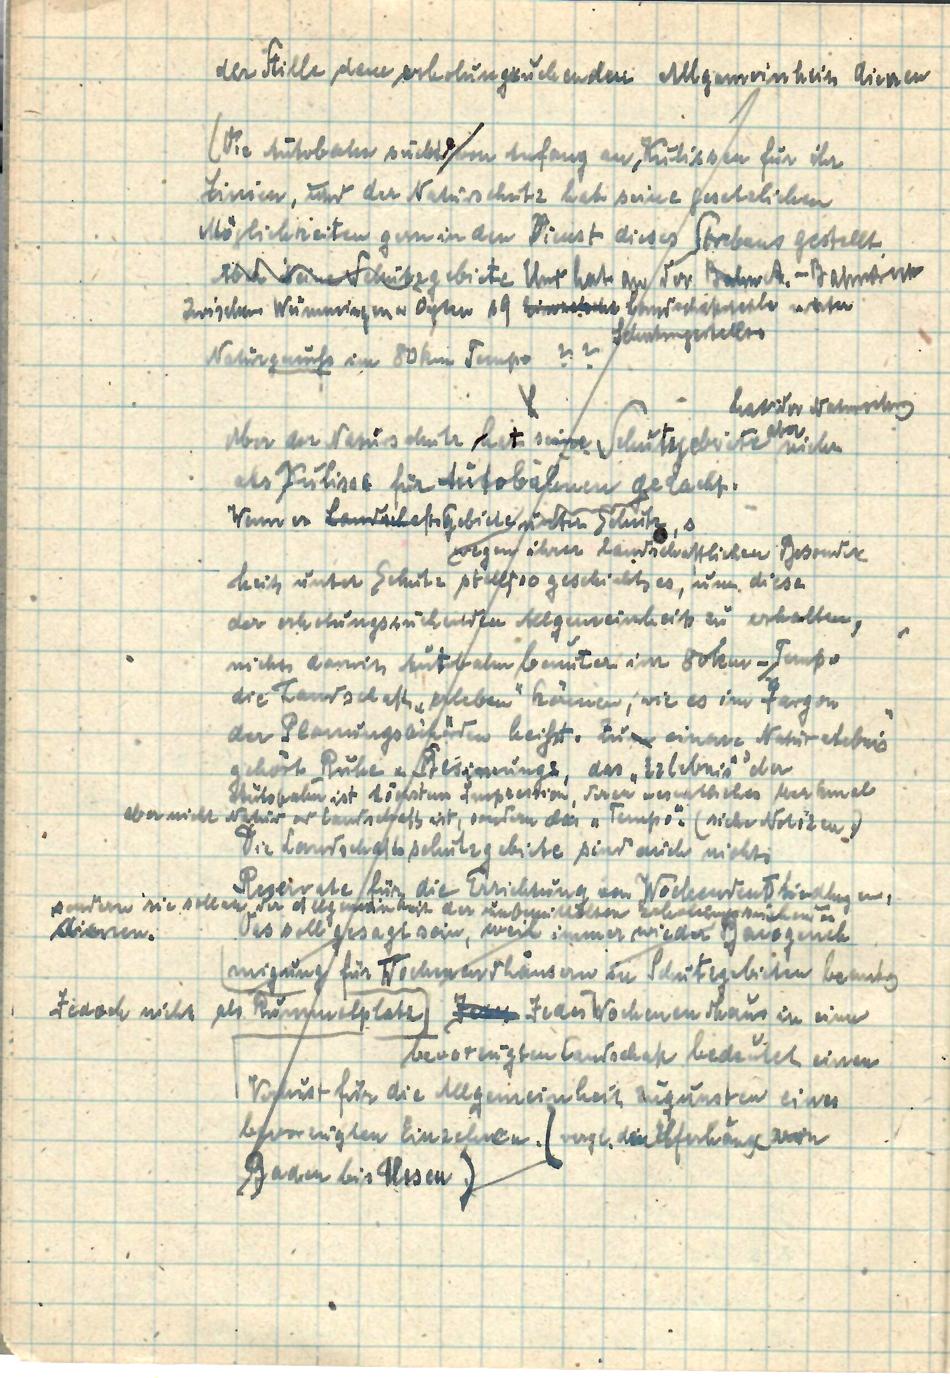 der Stille dem erholungsuchenden Allgemeinheit dienen
(Die Autobahn sucht von Anfang an Kulissen für ihr
Linien, und der Naturschutz hat seine gesetzlichen
Möglichkeiten gern in den Dienst dieses Strebens gestellt
und seine Schutzgebiete Und hat an der A.-Bahn
Zwischen Wümmingen u Oyten 19 Landschaftsteile unter
Schutz gestellt
Naturgenuß im 80 km Tempo ? ?
hat der Naturschutz
Aber der Naturschutz hat seine Schutzgebiete aber nicht
als Kulisse für Autobahnen gedacht.
Wenn er Landschafts Gebiete unter Schutz,
wegen ihrer landschaftlichen Besonder
heit unter Schutz stellt so geschieht es, um diese
der erholungssuchenden Allgemeinheit zu erhalten,
nicht damit Autobahnbenutzer im 80 km-Tempo
die Landschaft „erleben" können, wie es im Jargon
der Planungsbehörden heißt. Zu einem Naturerlebnis
gehört Ruhe u. Besinnung, das „Erlebnis" der
Autobahn ist höchstens Impression, deren wesentliches Merkmal
aber nicht Natur od Landschaft ist, sondern das „Tempo". (siehe Notizen!)
Die Landschaftsschutzgebiete sind auch nicht
Reservate für die Errichtung von Wochenendsiedlungen,
sondern sie sollen der Allgemeinheit der
dienen. Das soll gesagt sein, weil immer wieder Baugeneh
migung für Wochenendhäuser in Schutzgebieten beantr
Jedoch nicht als Rummelplatz] Jedes Wochenendhaus in einer
bevorzugten Landschaft bedeutet einen
Verlust für die Allgemeinheit zugunsten eines
bevorzugten Einzelnen. (vergl. die Uferhänge von
Baden bis Uesen)